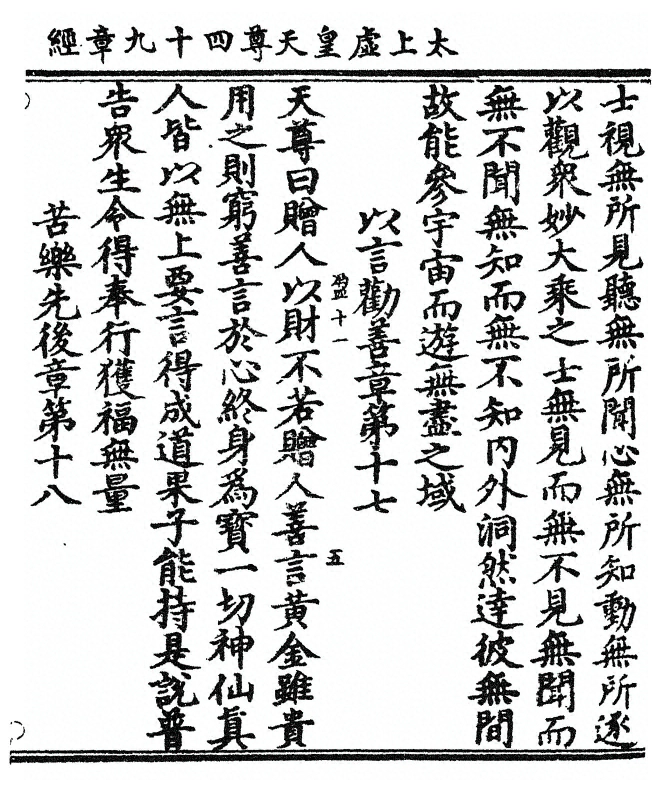 太上虛皇天尊四十九章經
士視無所見聽無所聞心無所知動無所逐
以觀衆妙大乘之士無見而無不見無聞而
無不聞無知而無不知內外洞然達彼無間
故能參宇宙而遊無盡之域
以言勸善章第十七
天尊曰贈人以財不若贈人善言黃金雖貴
用之則窮善言於心終身爲寶一切神仙眞
人皆以無上要言得成道果子能持是說普
告衆生令得奉行獲福無量
苦樂先後章第十八
十一
五